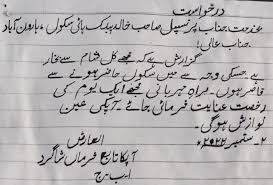 درخواست
بخدمت جناب پرنسپل صاحب خالد پبلک ہائی سکول، ہارون آباد
جناب عالی!
گزارش ہے کہ مجھے کل شام سے بخار
ہے جسکی وجہ سے میں سکول حاضر ہونے سے
قاصر ہوں۔ براہ مہربانی مجھے ایک یوم کی
رخصت عنایت فرمائی جائے۔ آپکی عین
نوازش ہوگی۔
العارض
۲۔ ستمبر ۲۰۲۴ء
آپکا تابع فرمان شاگرد
ا۔ب۔ج